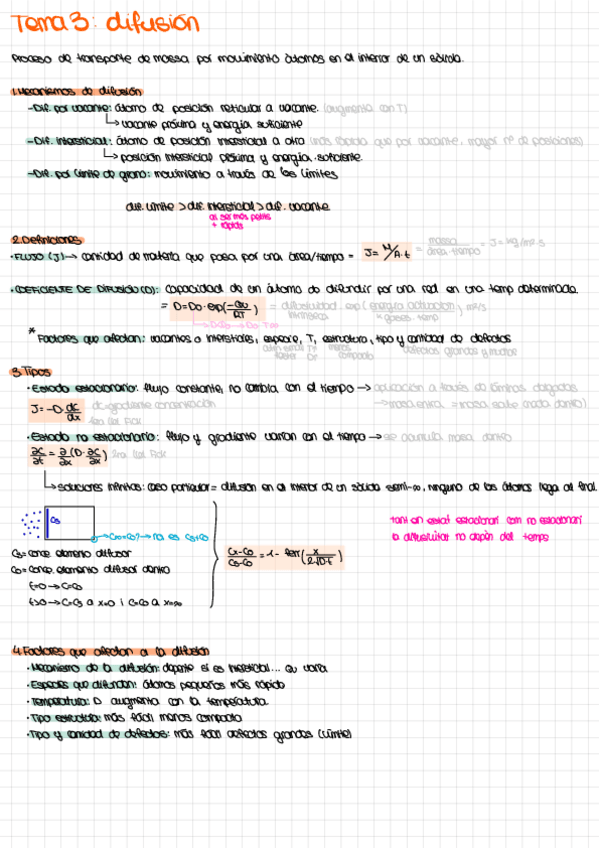 Tema 3: difusión
Proceso de transporte de massa por movimiento átomos en el interior de un sólido.
1. Mecanismos de difusión
- Dif. por vacante: átomo de posición reticular a vacante. (augmenta con T)
↳ vacante próxima y energía suficiente
- Dif. intersticial: átomo de posición intersticial a otra (más rápida que por vacante, mayor nº de posiciones)
↳ posición intersticial próxima y energía suficiente.
- Dif. por límite de grano: movimiento a través de los límites
dif. límite > dif. intersticial > dif. vacante
al ser más petits
+ rápids
2. Definiciones
· FLUSO (J) → cantidad de materia que pasa por una área/tiempo = J = M/A·t = massa/área·tiempo = J = kg/m²·s
· COEFICIENTE DE DIFUSIÓN (D): capacidad de un átomo de difundir por una red en una temp determinada.
= D = D₀·exp(-Qv/RT) = difusividad intrínseca · exp(energía activación/k gases·temp) m²/s
* Factores que afectan: vacantes o intersticiales, especie, T, estructura, tipo y cantidad de defectos
defectos grandes y muchos
3. Tipos
· Estado estacionario: flujo constante, no cambia con el tiempo → aplicación a través de láminas delgadas
J = -D dC/dx dC = gradiente concentración → massa entra = massa sale (nada dentro)
1era llei Fick
· Estado no estacionario: flujo y gradiente varían con el tiempo → se acumula masa dentro
∂C/∂t = ∂/∂x (D·∂C/∂x) 2na llei Fick
↳ soluciones infinitas: caso particular = difusión en el interior de un sólido semi-∞, ninguno de los átomos llega al final.
tant en estat estacionari com no estacionari
la difusivitat no depèn del temps
Cs
Cs = conc. elemento difusor
C₀ = conc. elemento difusor dentro
t=0 → C=C₀
t>0 → C=Cs a x=0 i C=C₀ a x=∞
Cx-C₀/Cs-C₀ = 1 - erf(x/2√D·t)
4. Factores que afectan a la difusión
· Mecanismo de la difusión: depente si es intersticial... Qv varia
· Especies que difunden: átomos pequeños más rápido
· Temperatura: D augmenta con la temperatura.
· Tipo estructura: más fácil menos compacta
· Tipo y cantidad de defectos: más fácil defectos grandes (límite)